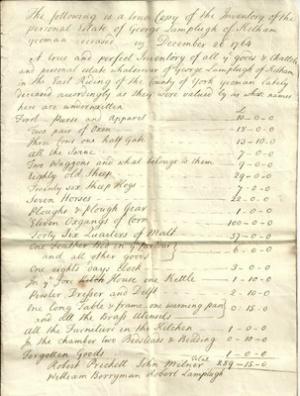 The following is a true Copy of the Inventory of the
personal Estate of George Lamplugh of Kelham
yeoman deceased December 26 1764
A true and perfect Inventory of all ye goods & Chattels
and personal estate whatsoever of George Lamplugh of Kelham
in the East Riding of the County of York yeoman lately
deceased accordingly as they were valued by us whose names
here are underwritten
£
First Purse and Apparel 10-0-0
Two pair of Oxen 18-0-0
Three four one half Gate 13-10-0
All the Swine 7-0-0
Two Waggons and what belongs to them
Eighty old Sheep 29-0-0
Twenty six Sheep Hogs 7-2-0
Seven Horses 22-0-0
Ploughs & Plough Gear 1-0-0
Eleven of Corn 100-0-0
Sixty Six Quarters of Malt 37-0-0
One Feather Bed in ye parlour
and all other goods
One eight days Clock 3-0-0
In ye Fore House one Kettle 1-10-0
Pewter Dresser and Delft 2-10-0
One long Table & frame one warming pan
and all the Brass Utensels 0-15-0
All the Furneture in the Kitchen 1-0-0
In the chamber two Bedsteads & Bedding 0-10-0
Forgotten Goods 1-0-0
Robert Prickett John Milner 289-15-0
William Berryman Robert Lamplugh